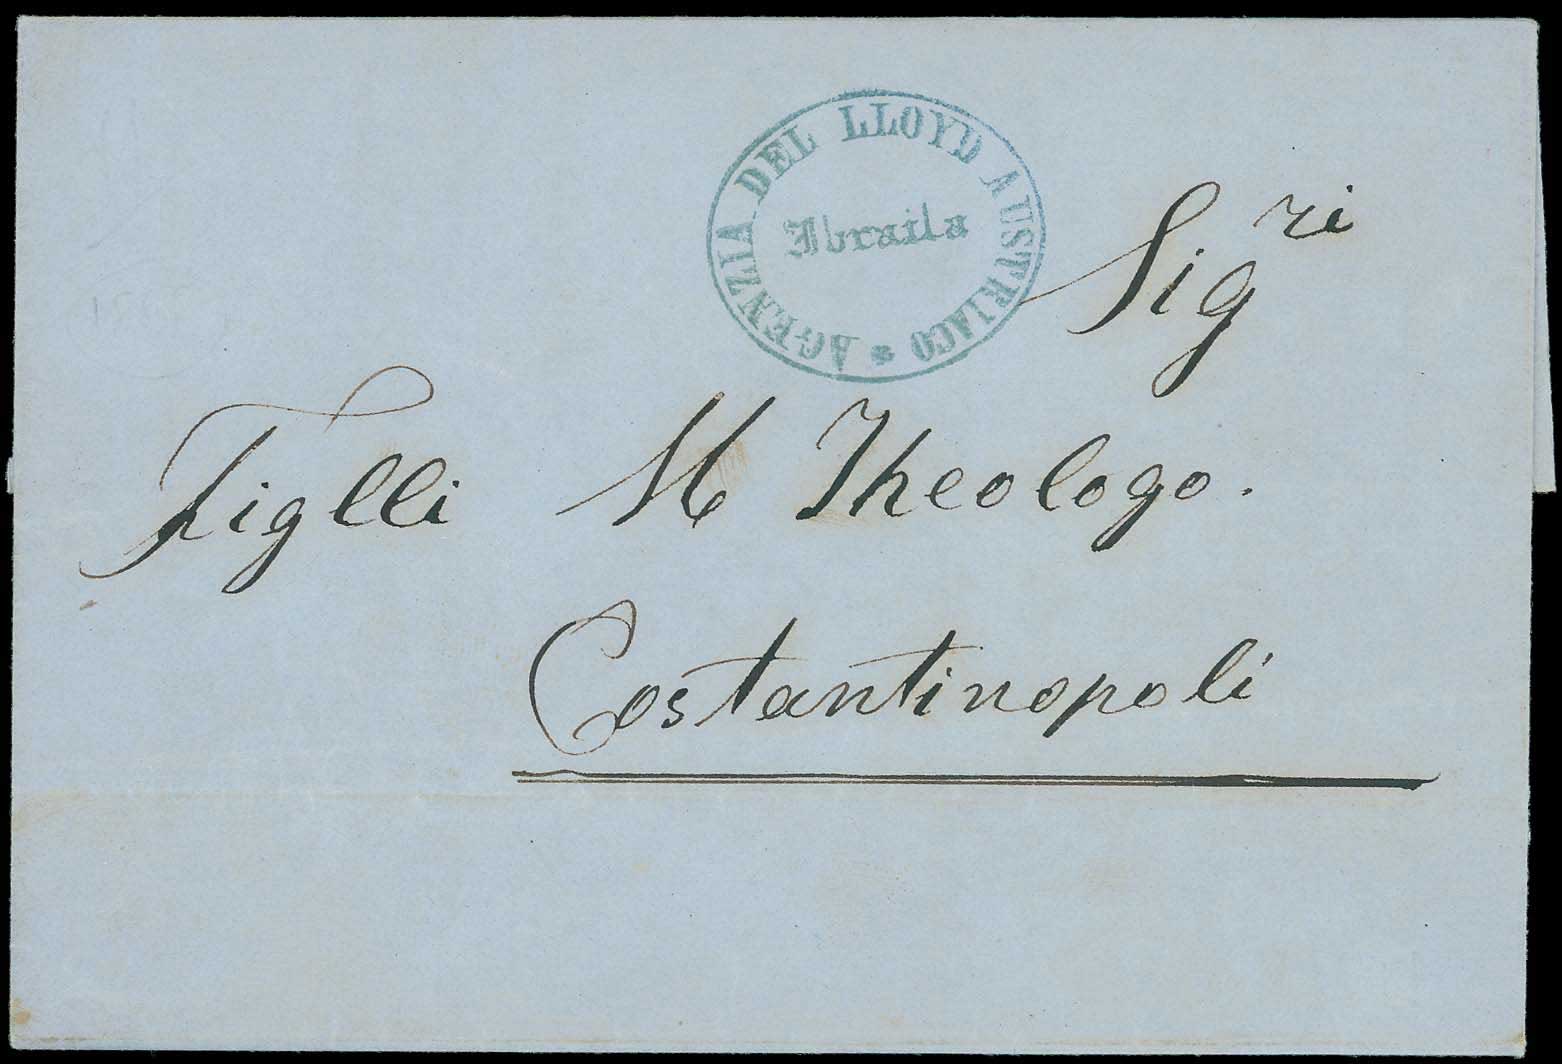 AGENZIA DEL LLOYD AUSTRIACO *
Ibraila
Sigri
Figlli M Theologo.
Costantinopoli